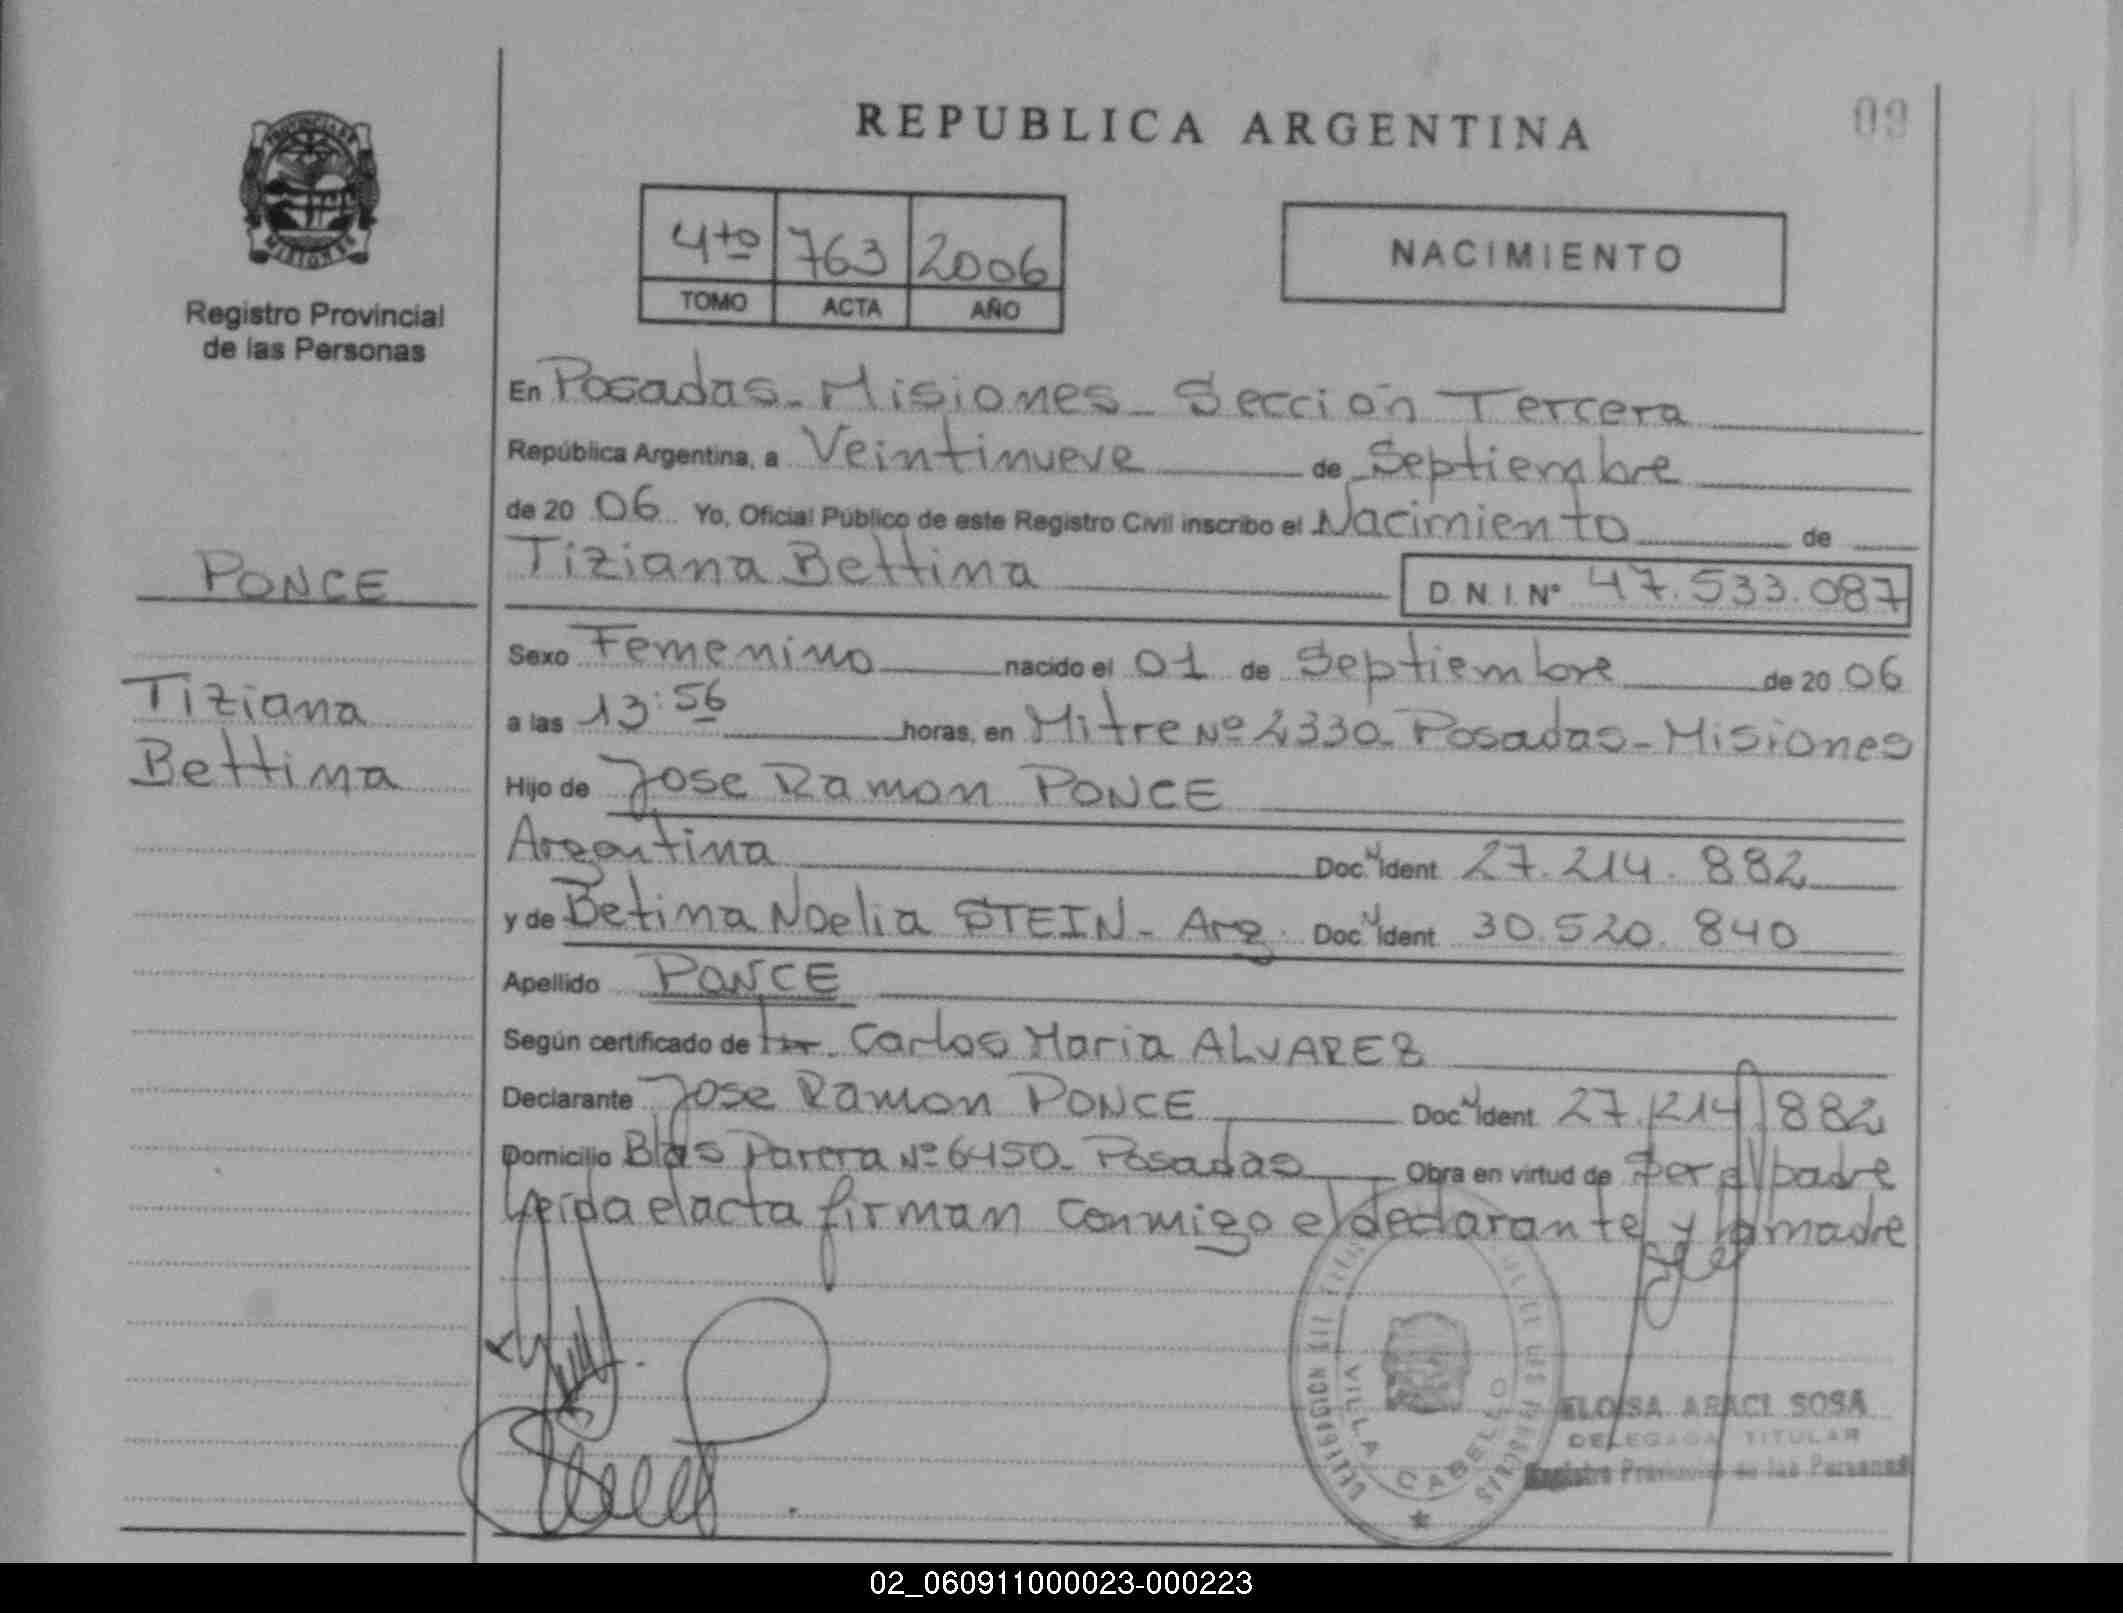 REPUBLICA ARGENTINA
09
PROVINCIA DE
MISIONES
Registro Provincial
de las Personas
4to 763 2006
TOMO ACTA AÑO
NACIMIENTO
En Posadas - Misiones - Sección Tercera
República Argentina, a Veintinueve de Septiembre
de 20 06 Yo, Oficial Público de este Registro Civil inscribo el Nacimiento de
Tiziana Bettina D.N.I. Nº 47.533.087
PONCE
Tiziana
Bettina
Sexo Femenino nacido el 01 de Septiembre de 20 06
a las 13:56 horas, en Mitre Nº 2330 - Posadas - Misiones
Hijo de Jose Ramon PONCE
Argentina Doc. Ident 27.214.882
y de Betina Noelia STEIN - Arg. Doc. Ident 30.520.840
Apellido PONCE
Según certificado de Carlos Maria ALVAREZ
Declarante Jose Ramon PONCE Doc. Ident 27.214.882
Domicilio Blas Parera Nº 6450 - Posadas Obra en virtud de Ser el padre
Leida el acta firman conmigo el declarante y la madre
VILLA CABELLO
ELOISA ARACI SOSA
DELEGADA TITULAR
Registro Provincial de las Personas
02_060911000023-000223